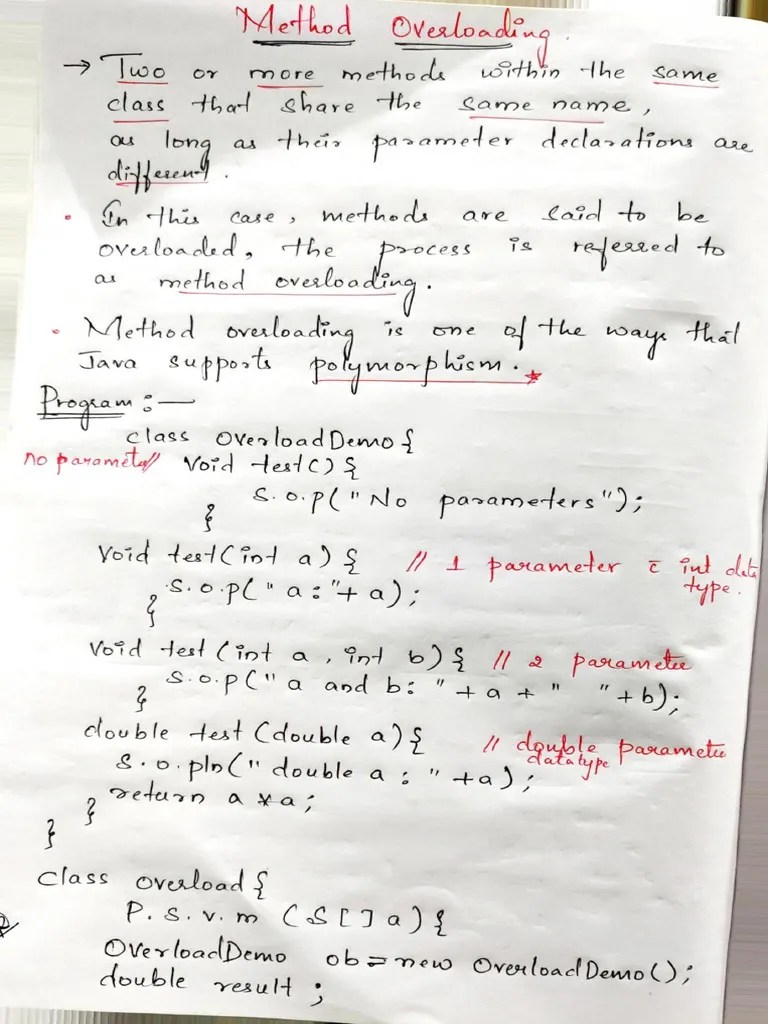 Method Overloading.
→ Two or more methods within the same
class that share the same name,
as long as their parameter declarations are
different.
• In this case, methods are said to be
overloaded, the process is referred to
as method overloading.
• Method overloading is one of the ways that
Java supports polymorphism. *
Program :—
class OverloadDemo {
no paramete// void test() {
S.o.p(" No parameters");
}
void test(int a) { // 1 parameter c̄ int data
type.
S.o.p(" a : "+ a);
}
void test (int a , int b) { // 2 parameter
S.o.p(" a and b: " + a + " " + b);
}
double test (double a) { // double parameter
datatype
S.o.pln(" double a : " +a);
return a * a;
}
}
class overload {
P. S. v. m (S [ ] a) {
OverloadDemo ob = new OverloadDemo();
double result ;